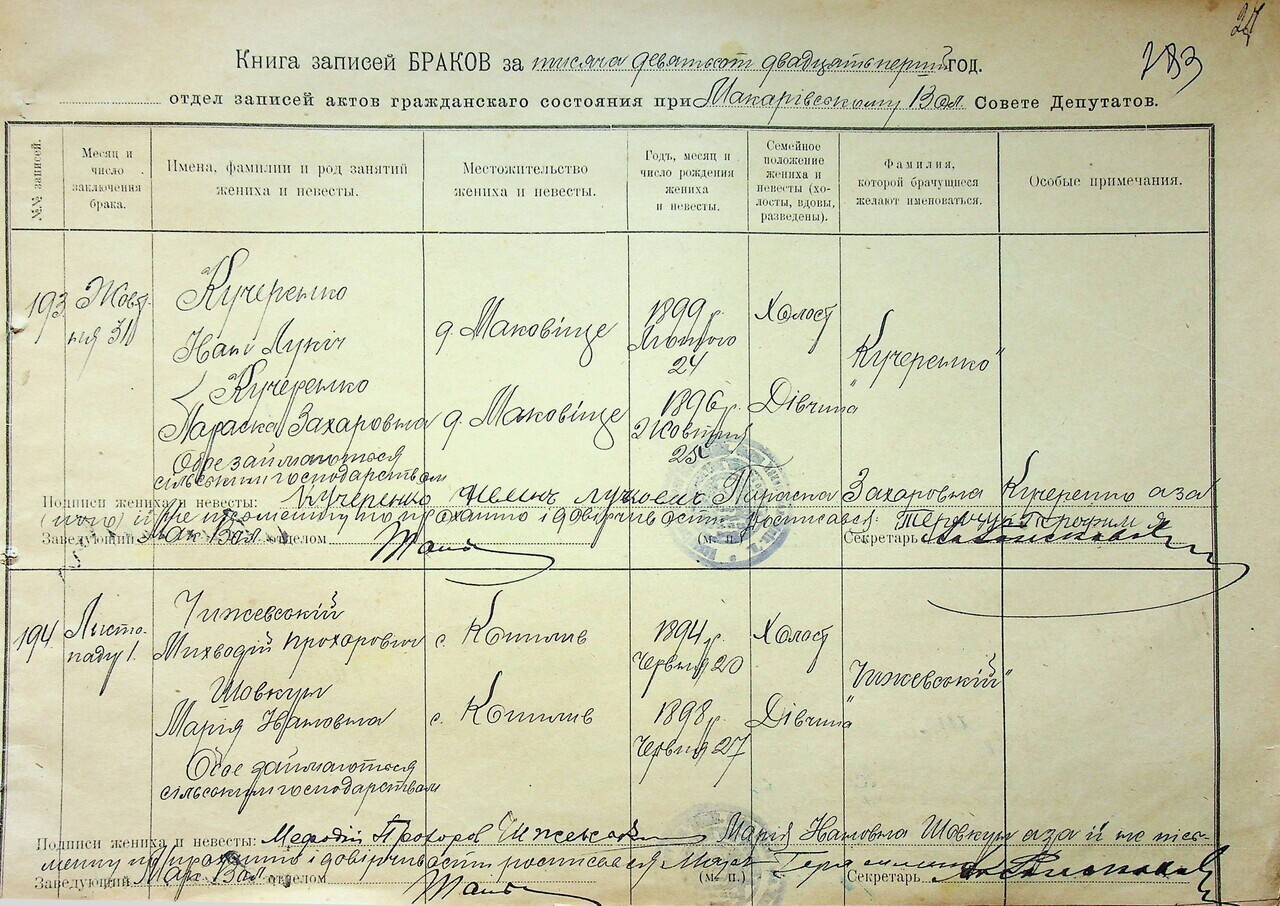 24
283
Книга записей БРАКОВ за тисяча девятьсот двадцать перший год.
отдел записей актов гражданскаго состояния при Макарівському Вол Совете Депутатов.
№№ записей.
Месяц и число заключения брака.
Имена, фамилии и род занятий жениха и невесты.
Местожительство жениха и невесты.
Годъ, месяц и число рождения жениха и невесты.
Семейное положение жениха и невесты (холосты, вдовы, разведены).
Фамилия, которой брачущиеся желают именоваться.
Особые примечания.
193
Жовт-
ня 31
Кучеренко
Іван Лукіч
Кучеренко
Параска Захаровна
Обоє займаються
сільським господарством
д. Маковіще
д. Маковіще
1899 р.
Лютого
24
1896 р.
Жовтня
28
Холост
Дівчина
"Кучеренко"
Подписи жениха и невесты: Кучеренко Параска Захаровна Кучеренко а за
неї неписьменну по проханню і довірчивості росписався:
Заведующий Мак Вол отделом
(м. п.)
Секретарь
194
Листо-
паду 1.
Чижевський
Михводій Прохорович
Шовкун
Марія Івановна
Обоє займаються
сільським господарством
с. Копилів
с. Копилів
1894 р.
Червня 20
1898 р.
Червня 27
Холост
Дівчина
"Чижевський"
Подписи жениха и невесты: Мефодій Прохоров Чижевський Марія Івановна Шовкун а за її не пись-
менну по проханню і довірчивості росписався
Заведующий Мак Вол отделом
(м. п.)
Секретарь